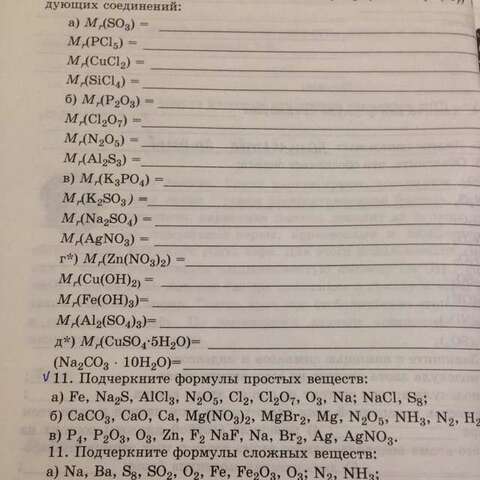 дующих соединений:
а) Mr(SO₃) =
Mr(PCl₅) =
Mr(CuCl₂) =
Mr(SiCl₄) =
б) Mr(P₂O₃) =
Mr(Cl₂O₇) =
Mr(N₂O₅) =
Mr(Al₂S₃) =
в) Mr(K₃PO₄) =
Mr(K₂SO₃) =
Mr(Na₂SO₄) =
Mr(AgNO₃) =
г*) Mr(Zn(NO₃)₂) =
Mr(Cu(OH)₂) =
Mr(Fe(OH)₃)=
Mr(Al₂(SO₄)₃)=
д*) Mr(CuSO₄·5H₂O)=
(Na₂CO₃ · 10H₂O)=
√ 11. Подчеркните формулы простых веществ:
а) Fe, Na₂S, AlCl₃, N₂O₅, Cl₂, Cl₂O₇, O₃, Na; NaCl, S₈;
б) CaCO₃, CaO, Ca, Mg(NO₃)₂, MgBr₂, Mg, N₂O₅, NH₃, N₂, H₂
в) P₄, P₂O₃, O₃, Zn, F₂ NaF, Na, Br₂, Ag, AgNO₃.
11. Подчеркните формулы сложных веществ:
а) Na, Ba, S₈, SO₂, O₂, Fe, Fe₂O₃, O₃; N₂, NH₃;